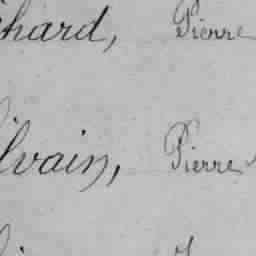 chard, Pierre
ilvain, Pierre